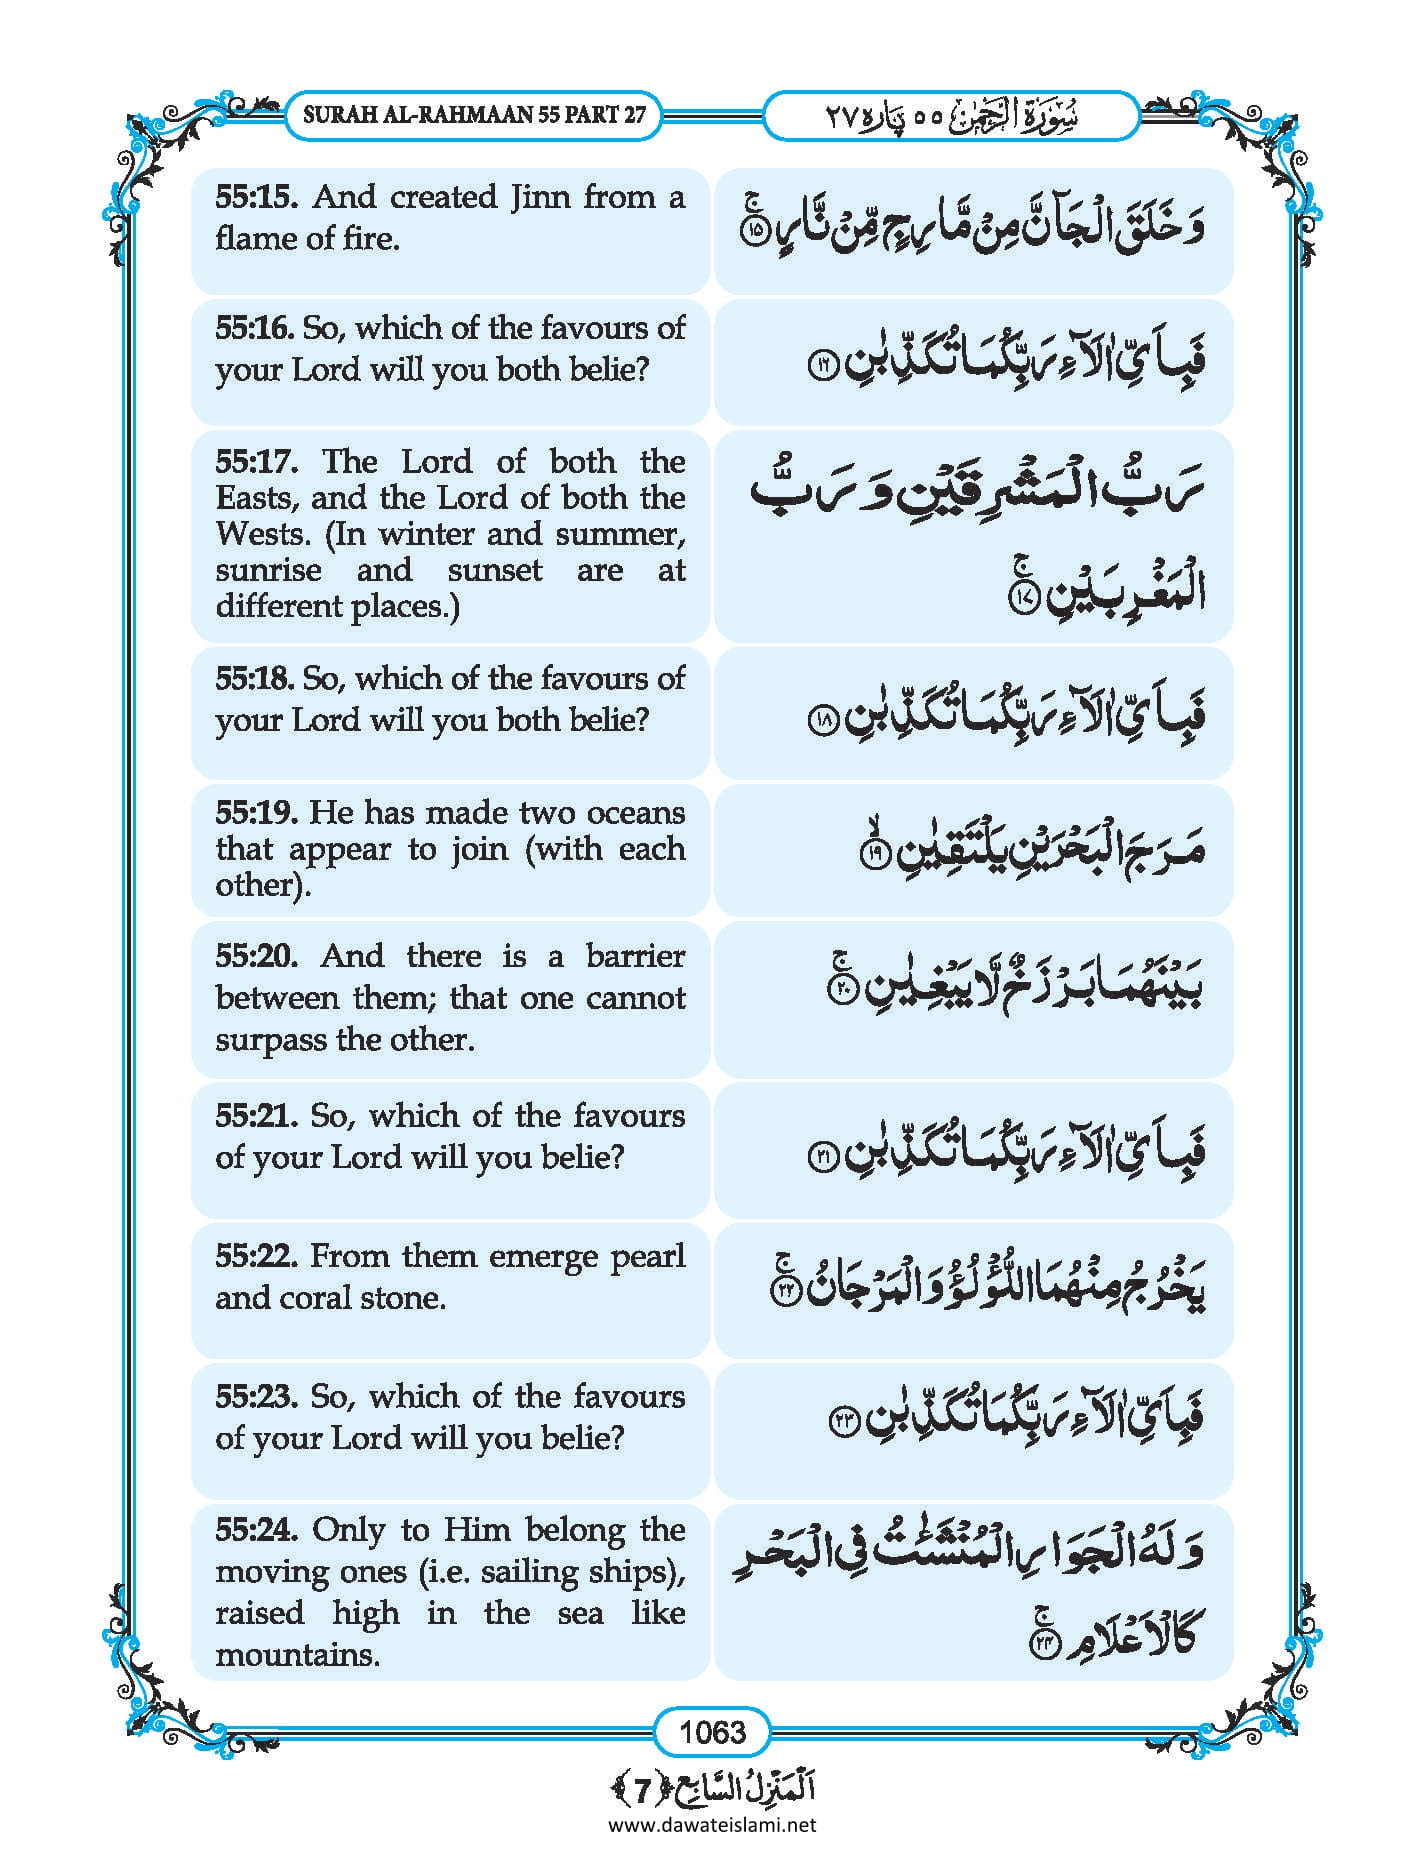 SURAH AL-RAHMAAN 55 PART 27
سُوْرَةُ الرَّحْمٰن ٥٥ پَارہ ٢٧
55:15. And created Jinn from a
flame of fire.
وَ خَلَقَ الْجَآنَّ مِنْ مَّارِجٍ مِّنْ نَّارٍ ۚ ﴿۱۵﴾
55:16. So, which of the favours of
your Lord will you both belie?
فَبِاَیِّ اٰلَآءِ رَبِّكُمَا تُكَذِّبٰنِ ﴿۱۶﴾
55:17. The Lord of both the
Easts, and the Lord of both the
Wests. (In winter and summer,
sunrise and sunset are at
different places.)
رَبُّ الْمَشْرِقَیْنِ وَ رَبُّ
الْمَغْرِبَیْنِ ۚ ﴿۱۷﴾
55:18. So, which of the favours of
your Lord will you both belie?
فَبِاَیِّ اٰلَآءِ رَبِّكُمَا تُكَذِّبٰنِ ﴿۱۸﴾
55:19. He has made two oceans
that appear to join (with each
other).
مَرَجَ الْبَحْرَیْنِ یَلْتَقِیٰنِ ۙ ﴿۱۹﴾
55:20. And there is a barrier
between them; that one cannot
surpass the other.
بَیْنَهُمَا بَرْزَخٌ لَّا یَبْغِیٰنِ ۚ ﴿۲۰﴾
55:21. So, which of the favours
of your Lord will you belie?
فَبِاَیِّ اٰلَآءِ رَبِّكُمَا تُكَذِّبٰنِ ﴿۲۱﴾
55:22. From them emerge pearl
and coral stone.
یَخْرُجُ مِنْهُمَا اللُّؤْلُؤُ وَ الْمَرْجَانُ ۚ ﴿۲۲﴾
55:23. So, which of the favours
of your Lord will you belie?
فَبِاَیِّ اٰلَآءِ رَبِّكُمَا تُكَذِّبٰنِ ﴿۲۳﴾
55:24. Only to Him belong the
moving ones (i.e. sailing ships),
raised high in the sea like
mountains.
وَ لَهُ الْجَوَارِ الْمُنْشَئٰتُ فِی الْبَحْرِ
كَالْاَعْلَامِ ۚ ﴿۲۴﴾
1063
اَلْمَنْزِلُ السَّابِع ﴿7﴾
www.dawateislami.net